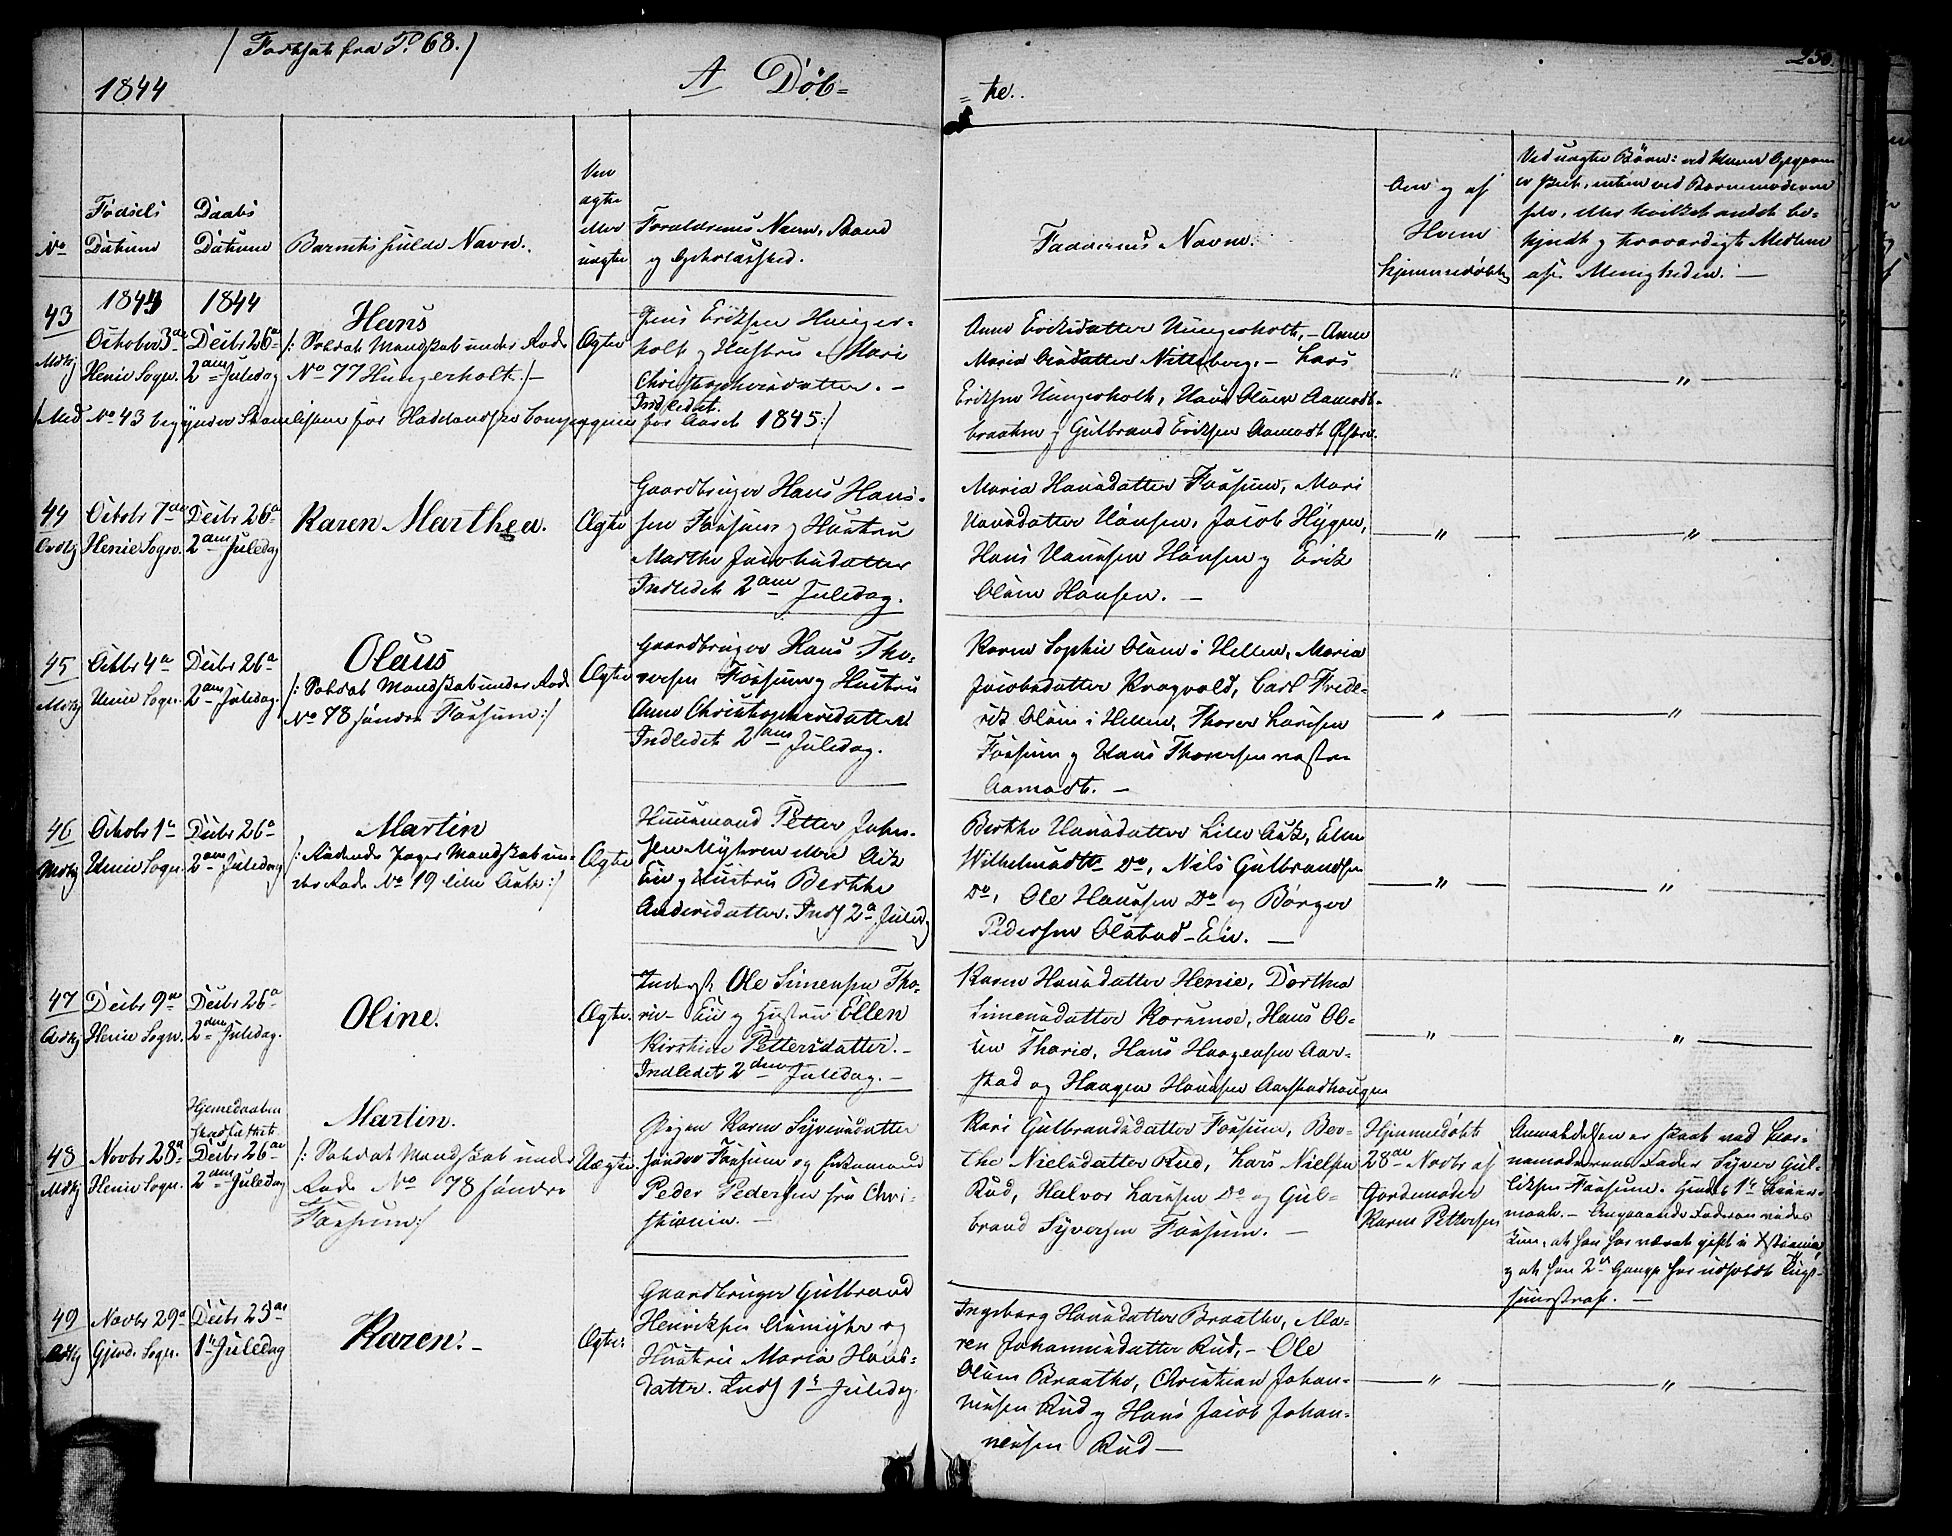 / Fortsat fra P. 68. /
1844
A Døb=
= te.
250.
No
Fødsels
Datum
Daabs
Datum
Barnets fulde Navn.
Om
ægte
eller
uægte
Forældrenes Navn, Stand
og Opholdssted.
Faddernes Navne.
Om og af
Hvem
hjemmedøbt
Ved uægte Børn: ved hvem Opgaven
er skeet, enten ved Barnemoderen
selv, eller hvilket andet be-
kjendt og troværdigt Medlem
af Menigheden. —
43
Mdkj
1844
October 3de
Henie Sogn.
1844
Decbr 26de
2den Juledag
Hans
/: Soldat Mandskab under Rode
No 77 Hungerholt :/ —
Ægte
Jens Eriksen Hunger-
holt og Hustru Mari
Christophersdatter. —
Indledet.
/ Med No 43 begynder Stamlisten for Hadelandske Compagnie for Aaret 1845 :/
Anne Eriksdatter Hungerholt, — Anne
Maria Olsdatter Nitteberg, — Lars
Eriksen Hungerholt, Hans Olsen Aamodt-
braaten og Gulbrand Eriksen Aamodt Østre.
"
"
44
Qvdkj
Octobr 7de
Henie Sogn.
Decbr 26de
2den Juledag
Karen Marthea.
Ægte
Gaardbruger Hans Hans-
sen Fossum og Hustru
Marthe Jacobsdatter
Indledet 2den Juledag.
Maria Hansdatter Fossum, Mari
Hansdatter Hønsen, Jacob Hygen,
Hans Hansen Hønsen og Erik
Olsen Hønsen. —
"
"
45
Mdkj
Octbr 4de
Henie Sogn.
Decbr 26de
2den Juledag.
Olaus
/: Soldat Mandskab under Rode
No 78 søndre Fossum :/
Ægte
Gaardbruger Hans Tho-
versen Fossum og Hustru
Anne Christophersdatter
Indledet 2den Juledag.
Karen Sophie Olsen i Hellen, Maria
Jacobsdatter Kragvold, Carl Frede-
rik Olsen i Hellen, Thorer Larsen
Fossum og Hans Thoversen vestre
Aamodt. —
"
"
46
Mdkj
Octobr 1ste
Henie Sogn.
Decbr 26de
2den Juledag
Martin
/: Ridende Jæger Mandskab un-
der Rode No 19 lille Ask :/
Ægte
Huusmand Petter John-
sen Myhren Ask
Eie og Hustru Berthe
Andersdatter. Indl 2den Juledag
Berthe Hansdatter Lille Ask, Ellen
Wilhelmsdtr Do, Nils Gulbrandsen
Do, Ole Hansen Do og Børger
Pedersen Olstad-Eie. —
"
"
47
Qvdkj
Decbr 9de
Henie Sogn.
Decbr 26de
2den Juledag.
Oline.
Ægte.
Inderst Ole Simensen Tho-
rie-Eie og Hustru Ellen
Kirstine Pettersdatter. —
Indledet 2den Juledag. —
Karen Hansdatter Henie, Dorthea
Simensdatter Korsmoe, Hans Ol-
sen Thorie, Hans Haagensen Aar-
stad og Haagen Hansen Aarstadhaugen
"
"
48
Mdkj
Novbr 28de
Henie Sogn.
Hjemedaaben
stadfæstet
Decbr 26de
2den Juledag
Martin.
/: Soldat Mandskab under
Rode No 78 søndre
Fossum :/
Uægte.
Pigen Karen Syversdatter
søndre Fossum og Enkemand
Peder Pedersen fra Chri-
stiania. —
Kari Gulbrandsdatter Fossum, Ber-
the Nielsdatter Rud, Lars Nielsen
Rud, Halvor Larsen Do og Gul-
brand Syversen Fossum. —
Hjemmedøbt
28de Novbr af
Jordemoder
Karen Pettersen
Anmeldelsen er skeet ved Bar-
nemoderens Fader Syver Gul-
liksen Fossum. Hendes 1ste Leier-
maal. — Angaaende Faderen vides
kun, at han har været gift i Xstiania,
og at han 2de Gange har udholdt Tugt-
huusstraf. —
49
Qvdkj
Novbr 29de
Gjerd. Sogn.
Decbr 25de
1ste Juledag
Karen. —
Ægte.
Gaardbruger Gulbrand
Henriksen og
Hustru Maria Hans-
datter. Indl 1ste Juledag.
Ingeborg Hansdatter Braathe, Ma-
ren Johannesdatter Rud, — Ole
Olsen Braathe, Christian Johan-
nesen Rud og Hans Jacob Johan-
nesen Rud —
"
"